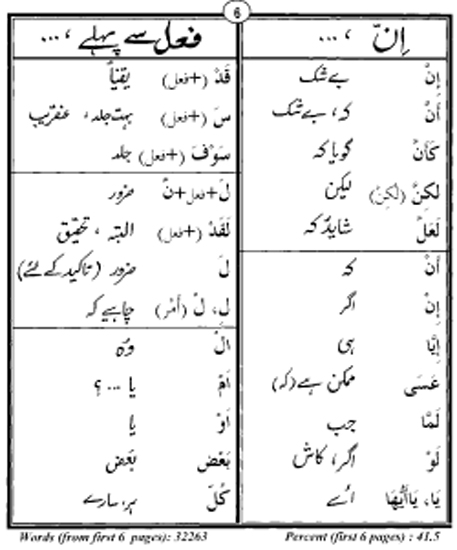 6
اِنَّ ، ...
اِنَّ بے شک
اَنَّ کہ، بے شک
کَاَنَّ گویا کہ
لٰکِنَّ (لٰکِنْ) لیکن
لَعَلَّ شاید کہ
اَنْ کہ
اِنْ اگر
اِیَّا ہی
عَسَی ممکن ہے (کہ)
لَمَّا جب
لَوْ اگر، کاش
یَا، یَااَیُّهَا اے
فعل سے پہلے ، ...
قَدْ (+فعل) یقیناً
سَ (+فعل) بہت جلد، عنقریب
سَوْفَ (+فعل) جلد
لَ+فعل+نَّ ضرور
لَقَدْ (+فعل) البتہ ، تحقیق
لَ ضرور (تاکید کے لئے)
لِ، لْ (اَمْر) چاہیے کہ
الْ وہ
اَمْ یا ...؟
اَوْ یا
بَعْض بعض
کُلّ ہر، سارے
Words (from first 6 pages): 32263
Percent (first 6 pages) : 41.5